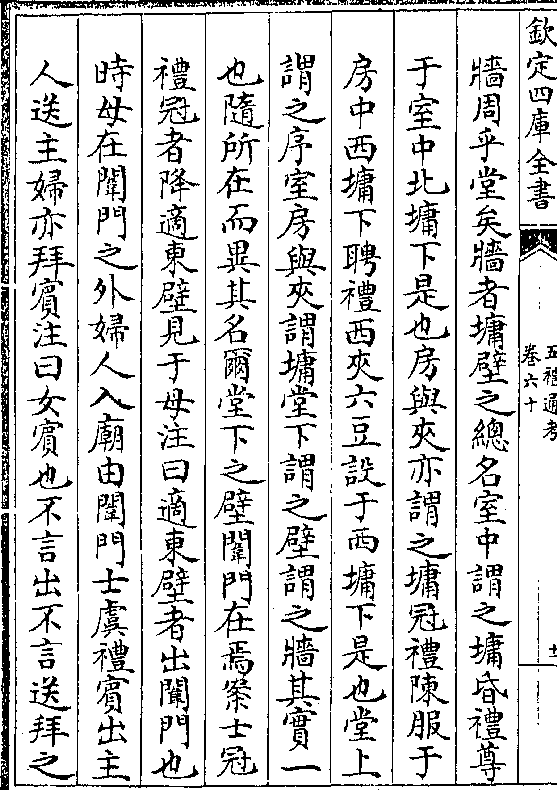 欽定四庫全書
五禮通考
卷六十
土
牆周乎堂矣牆者墉壁之總名室中謂之墉昏禮尊
于室中北墉下是也房與夾亦謂之墉冠禮陳服于
房中西墉下聘禮西夾六豆設于西墉下是也堂上
謂之序室房與夾謂墉堂下謂之壁謂之牆其實一
也隨所在而異其名爾堂下之壁闈門在焉案士冠
禮冠者降適東壁見于母注曰適東壁者出闈門也
時母在闈門之外婦人入廟由闈門士虞禮賓出主
人送主婦亦拜賓注曰女賓也不言出不言送拜之